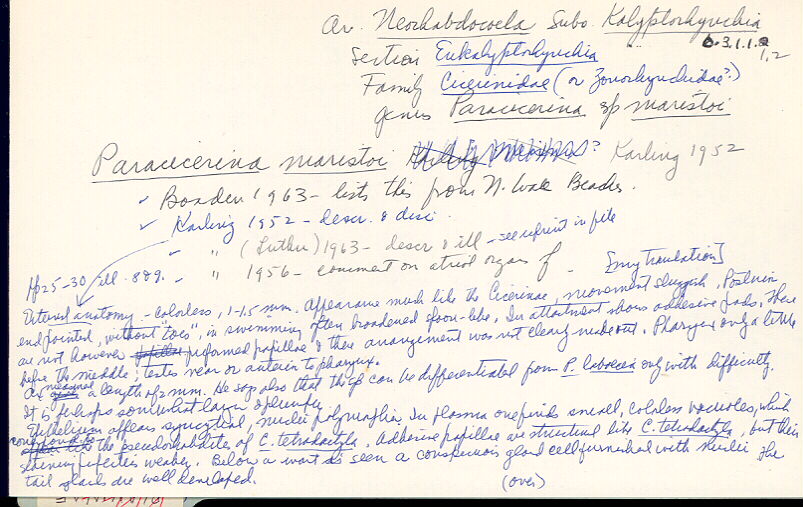 Or. Neorhabdocoela Subo. Kalyptorhynchia
6.3.1.1.2
1,2
Section Eukalyptorhynchia
Family Cicerinidae (or Zonorhynchidae?)
genus Paracicerina sp maristoi
Paracicerina maristoi Karling 1952
✓ Boaden 1963 - lists this from N. Wale Beaches.
✓ Karling 1952 - descr. & disc.
" (Luther) 1963 - descr & ill - see reprint in file
" 1956 - comment on atrial organs of
[my translation]
pp 25-30 ill. 889.
External anatomy - colorless, 1-1.5 mm. Appearance much like the Cicerinae, movement sluggish, Posterior
end pointed, without "toes", in swimming often broadened spoon-like. In attachment shows adhesive pads, there
are not however preformed papillae & there arrangement was not clearly made out. Pharynx only a little
before the middle; testes near or anterior to pharynx.
a length of 2 mm. He says also that this can be differentiated from P. laboeica only with difficulty.
It is perhaps somewhat larger & plumper
Epithelium appears syncytial, nuclei polymorphic. In plasma one finds small, colorless vacuoles, which
correspond to the pseudorhabdite of C. tetradactyla. Adhesive papillae are structured like C. tetradactyla, but their
staining properties weaker. Below a wart is seen a conspicuous gland cell furnished with nuclei The
tail glands are well developed.
(over)